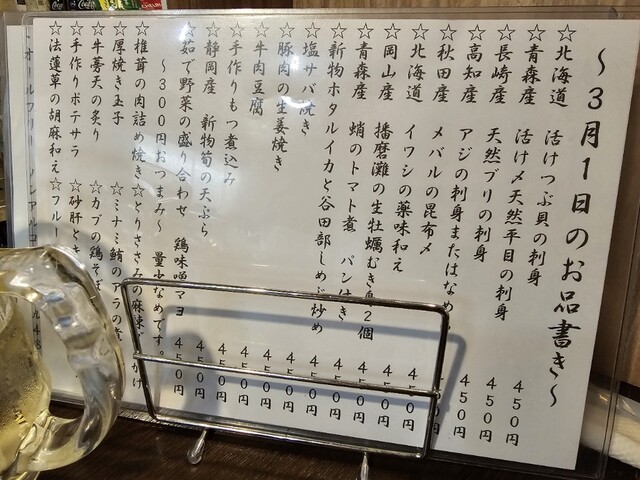 ～3月1日のお品書き～
☆北海道 活けつぶ貝の刺身 450円
☆青森産 活け〆天然平目の刺身 450円
☆長崎産 天然ブリの刺身 450円
☆高知産 アジの刺身またはなめ 円
☆秋田産 メバルの昆布〆 450円
☆北海道 イワシの薬味和え 450円
☆岡山産 播磨灘の生牡蠣むき身2個 450円
☆青森産 蛸のトマト煮 パン付き 450円
☆新物ホタルイカと谷田部しめじ炒め 450円
☆塩サバ焼き 450円
☆豚肉の生姜焼き 450円
☆牛肉豆腐 450円
☆手作りもつ煮込み 450円
☆静岡産 新物筍の天ぷら 450円
☆茹で野菜の盛り合わせ 鶏味噌マヨ 450円
～300円おつまみ～ 量少なめです。
☆椎茸の肉詰め焼き ☆とりささみの麻辣 がけ
☆厚焼き玉子 ☆ミナミ鮪のアラの煮
☆牛蒡天の炙り ☆カブの鶏そぼ
☆手作りポテサラ ☆砂肝と
☆法蓮草の胡麻和え ☆フルー
オールフリー ノンアル